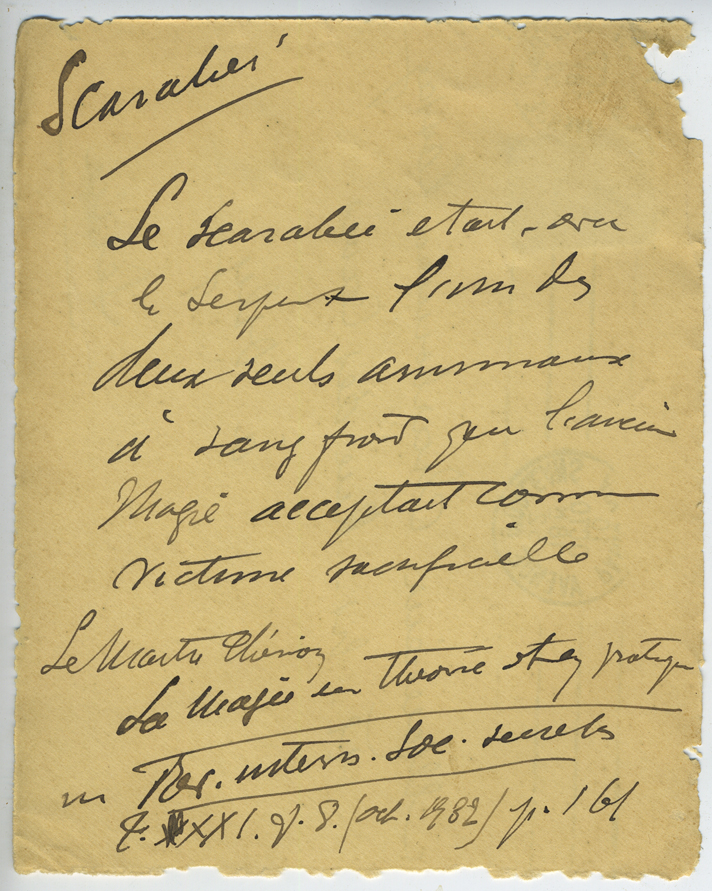 Scarabée
Le scarabée était, avec
le serpent l'un des
deux seuls animaux
à sang froid que l'ancienne
Magie acceptait comme
victime sacrificielle
Le Maître Thérion
La Magie en théorie et en pratique
in Rev. intern. Soc. secrètes
t. XXI. n. 8. (oct. 1932) p. 161